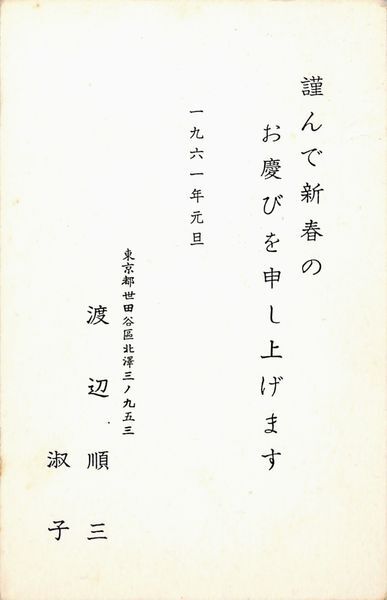 謹んで新春の
お慶びを申し上げます
一九六一年元旦
東京都世田谷區北澤三ノ九五三
渡辺順三
淑子